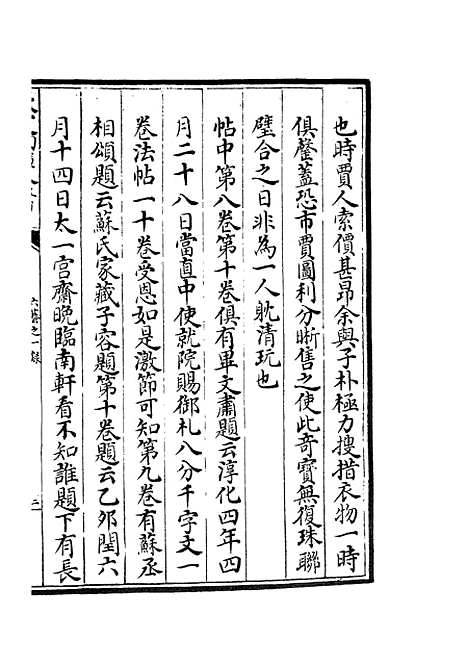 也時賈人索價甚昂余與子朴極力搜措衣物一時
俱罄蓋恐市賈圖利分晰售之使此奇寶無復珠聯
璧合之日非為一人躭清玩也
帖中第八卷第十卷俱有畢文肅題云淳化四年四
月二十八日當直中使就院賜御札八分千字文一
卷法帖一十卷受恩如是激節可知第九卷有蘇丞
相頌題云蘇氏家藏子容題第十卷題云乙夘閏六
月十四日太一宮齋晩臨南軒看不知誰題下有長
六藝之一錄
三